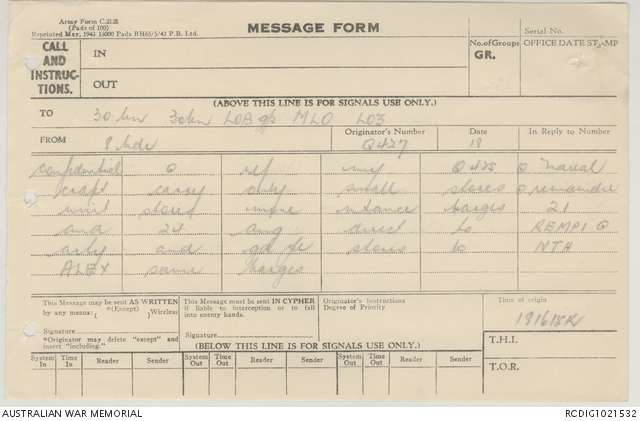 Army Form C.2128
(Pads of 100)
Reprinted May, 1943 15000 Pads BH465/5/43 P.B. Ltd.
MESSAGE FORM
Serial No.
CALL AND INSTRUCTIONS.
IN
OUT
No. of Groups GR.
OFFICE DATE STAMP
(ABOVE THIS LINE IS FOR SIGNALS USE ONLY.)
TO 30 bn LOB gp MLO LO3
FROM 8 bde
Originator's Number Q427
Date 18
In Reply to Number
confidential o ref my Q425 o naval
craft carry only small stores o remainder
unit stores barges 21
and 24 aug direct to REMPI o
and stores to NTH
ALEX same barges
This Message may be sent AS WRITTEN
by any means: (*(Except) ) Wireless
Signature
*Originator may delete "except" and
insert "including."
This Message must be sent IN CYPHER
if liable to interception or to fall
into enemy hands.
Signature
Originator's Instructions
Degree of Priority
Time of origin
181615K
(BELOW THIS LINE IS FOR SIGNALS USE ONLY.)
T.H.I.
T.O.R.
System In Time In Reader Sender System Out Time Out Reader Sender System Out Time Out Reader Sender
AUSTRALIAN WAR MEMORIAL
RCDIG1021532